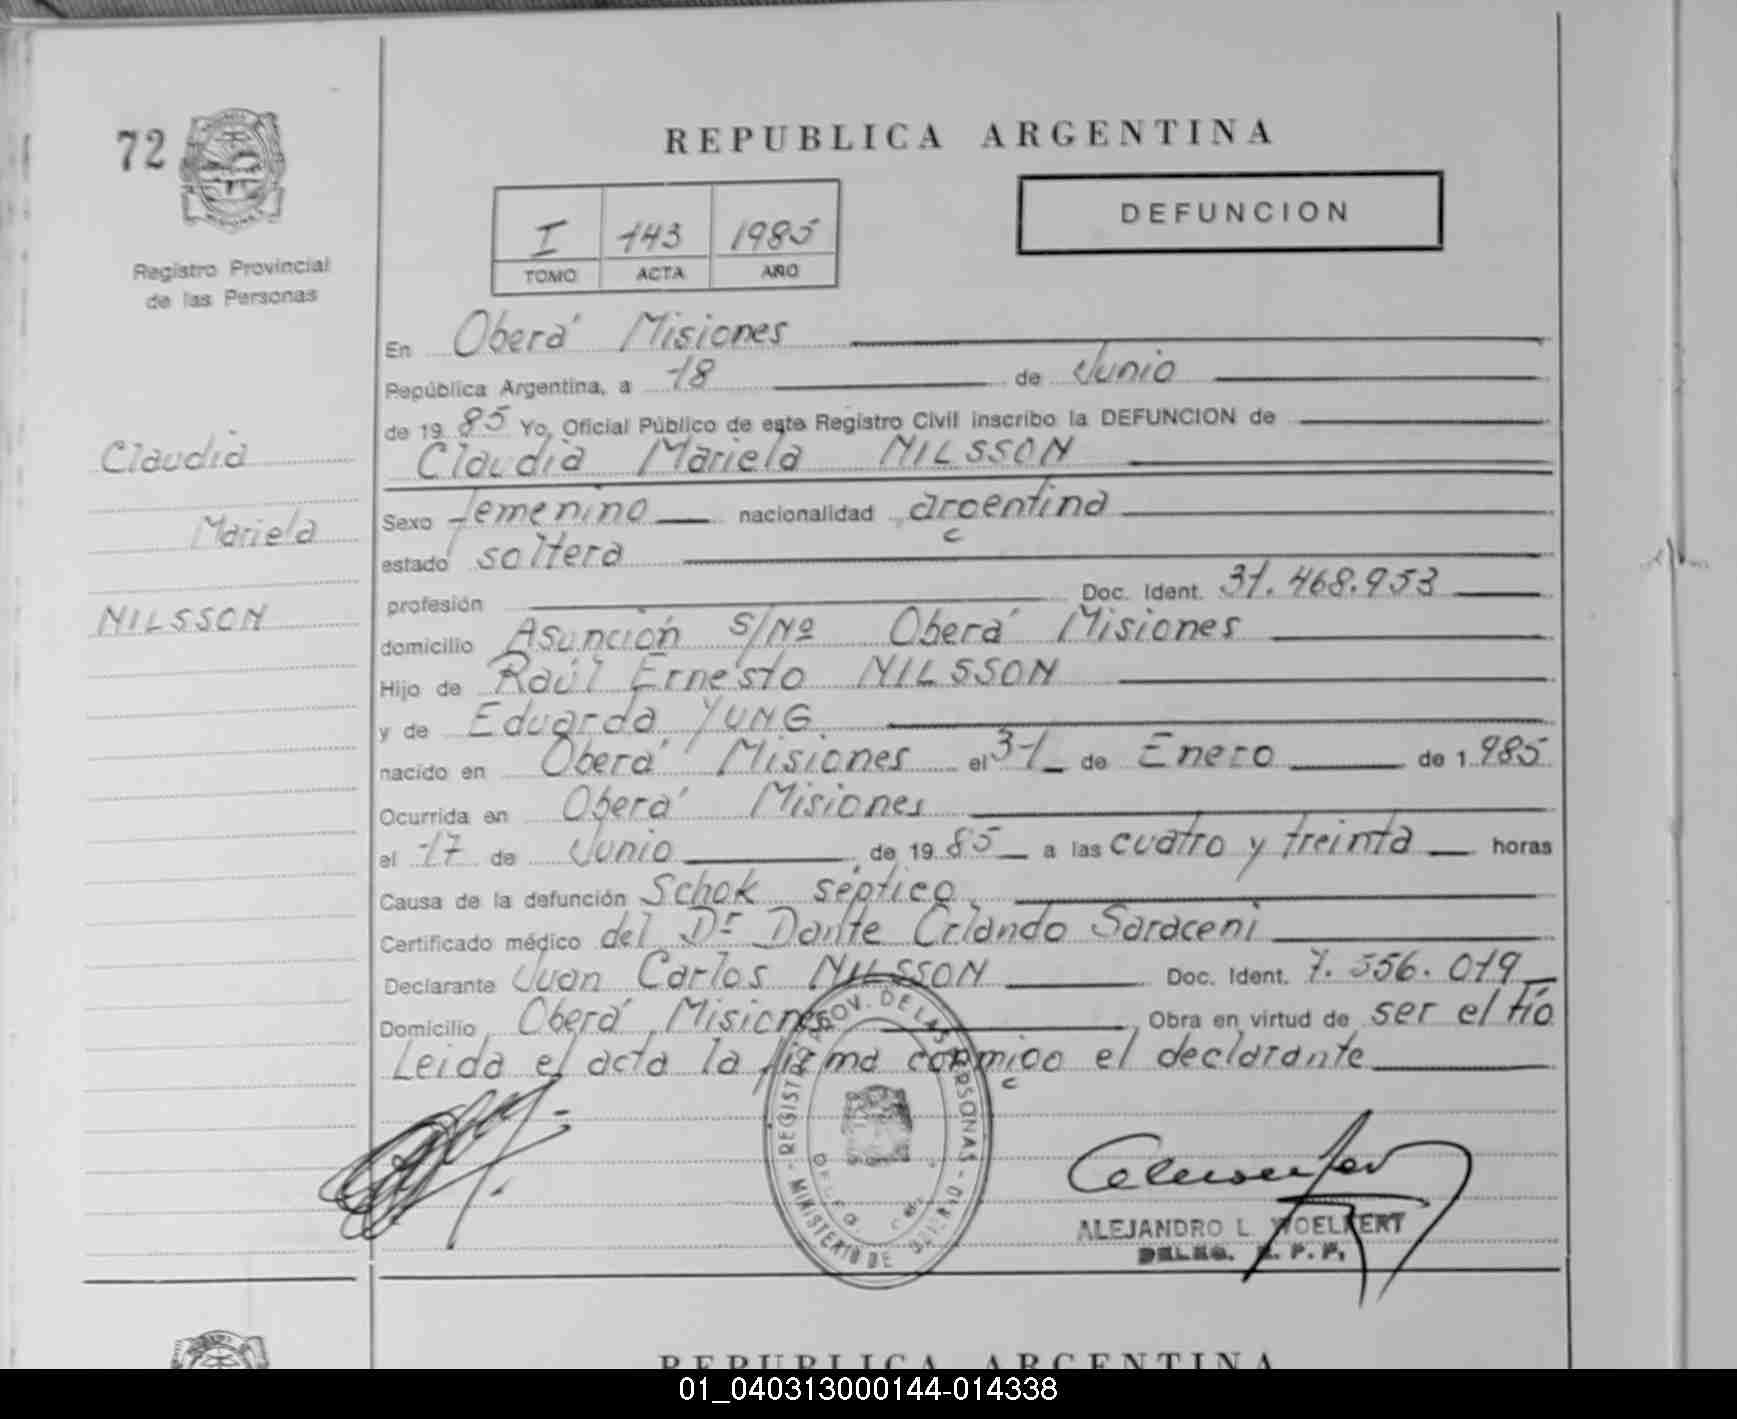 72
Registro Provincial
de las Personas
REPUBLICA ARGENTINA
I 143 1985
TOMO ACTA AÑO
DEFUNCION
Claudia
Mariela
NILSSON
En Oberá Misiones
República Argentina, a 18 de Junio
de 19 85 Yo, Oficial Público de este Registro Civil inscribo la DEFUNCION de
Claudia Mariela NILSSON
Sexo femenino nacionalidad argentina
estado soltera
profesión Doc. Ident. 31.468.953
domicilio Asunción S/Nº Oberá Misiones
Hijo de Raúl Ernesto NILSSON
y de Eduarda YUNG
nacido en Oberá Misiones el 31 de Enero de 1.985
Ocurrida en Oberá Misiones
el 17 de Junio de 19 85 a las cuatro y treinta horas
Causa de la defunción Schok séptico
Certificado médico del Dr Dante Orlando Saraceni
Declarante Juan Carlos NILSSON Doc. Ident. 7.556.019
Domicilio Oberá Misiones Obra en virtud de ser el tío
Leida el acta la firma conmigo el declarante
REGISTRO PROV. DE LAS PERSONAS
MINISTERIO DE
ALEJANDRO L. WOELKERT
DELEG. R. P. P.
REPUBLICA ARGENTINA
01_040313000144-014338